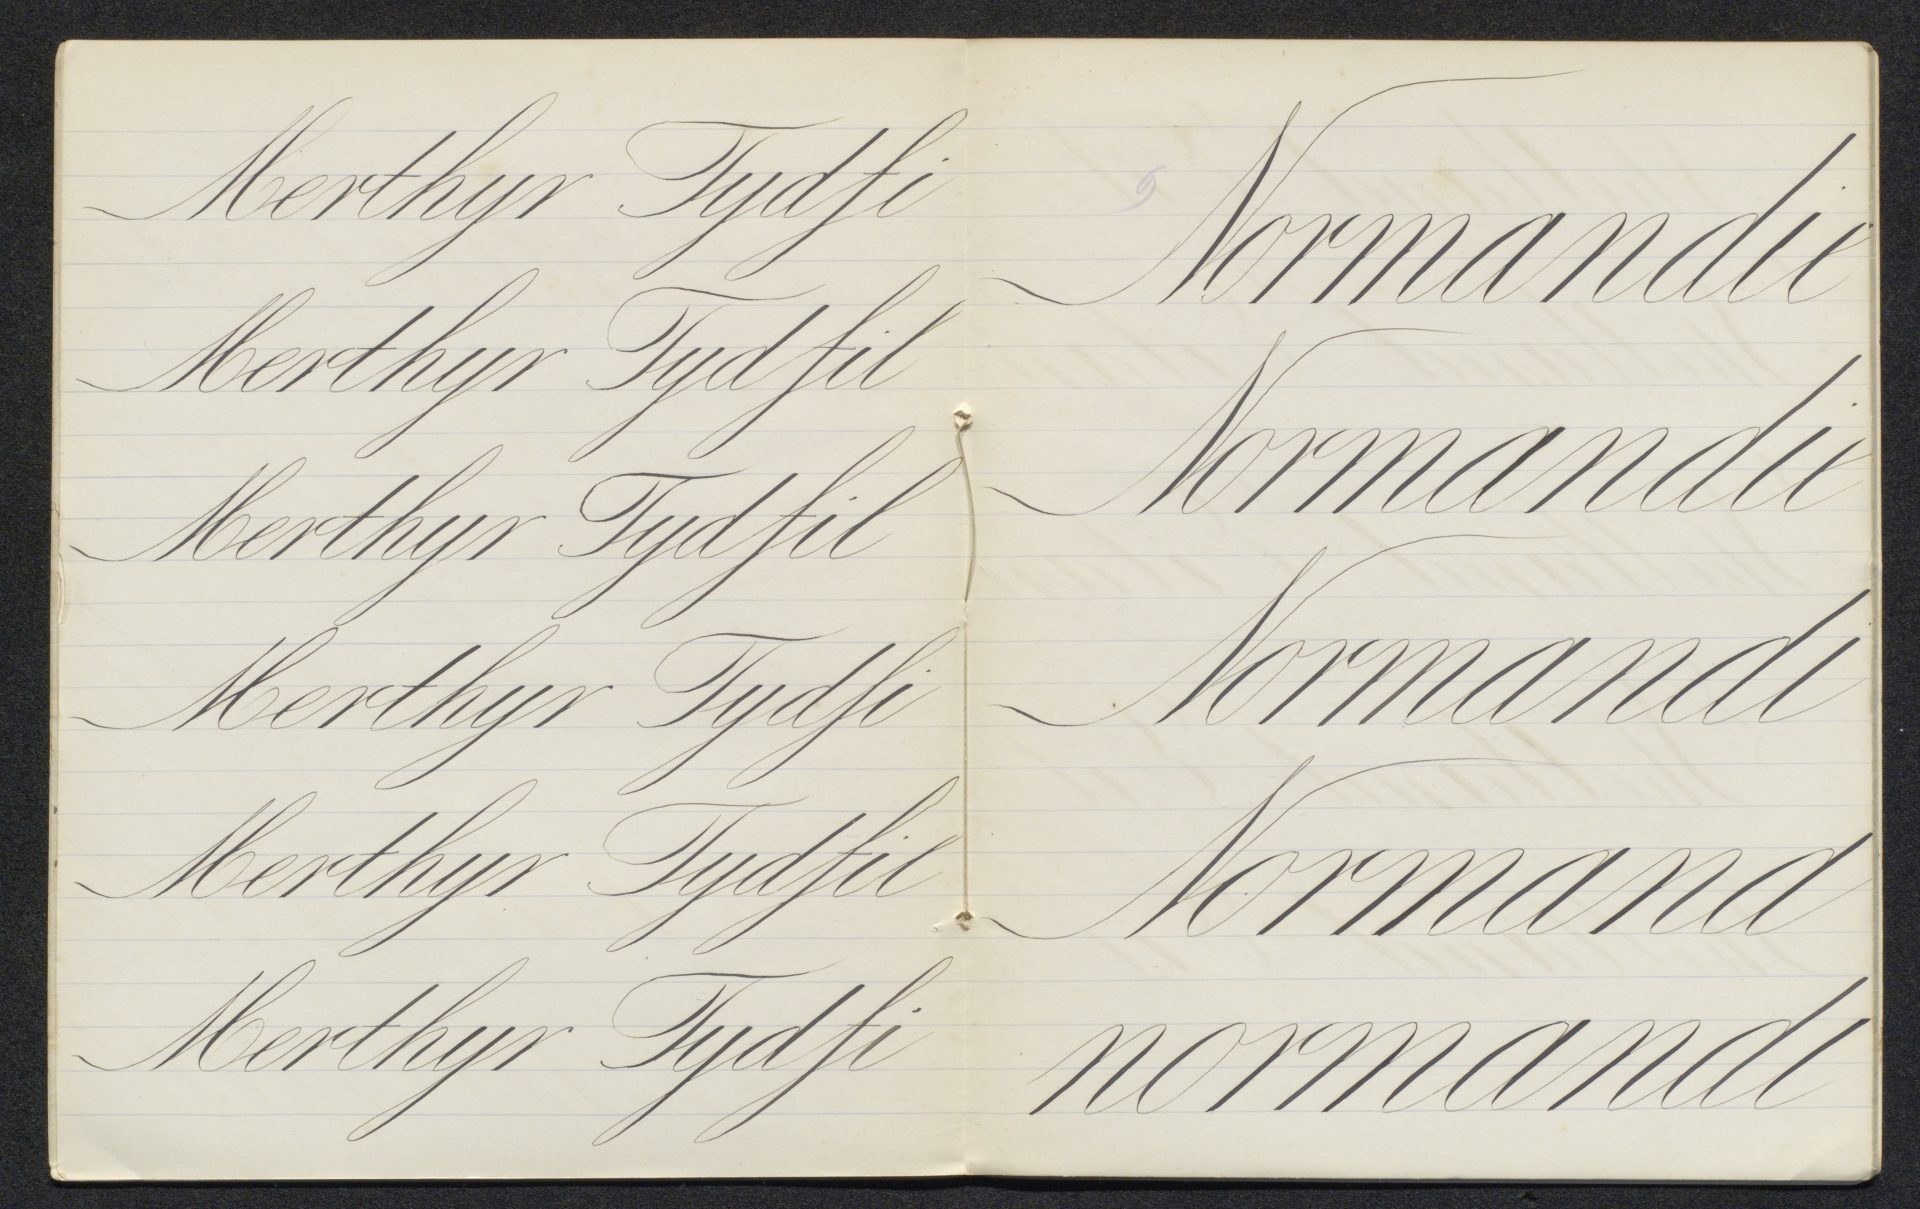 Merthyr Tydfi
Merthyr Tydfil
Merthyr Tydfil
Merthyr Tydfi
Merthyr Tydfil
Merthyr Tydfi
Normandie
Normandie
Normandi
Normand
normandi